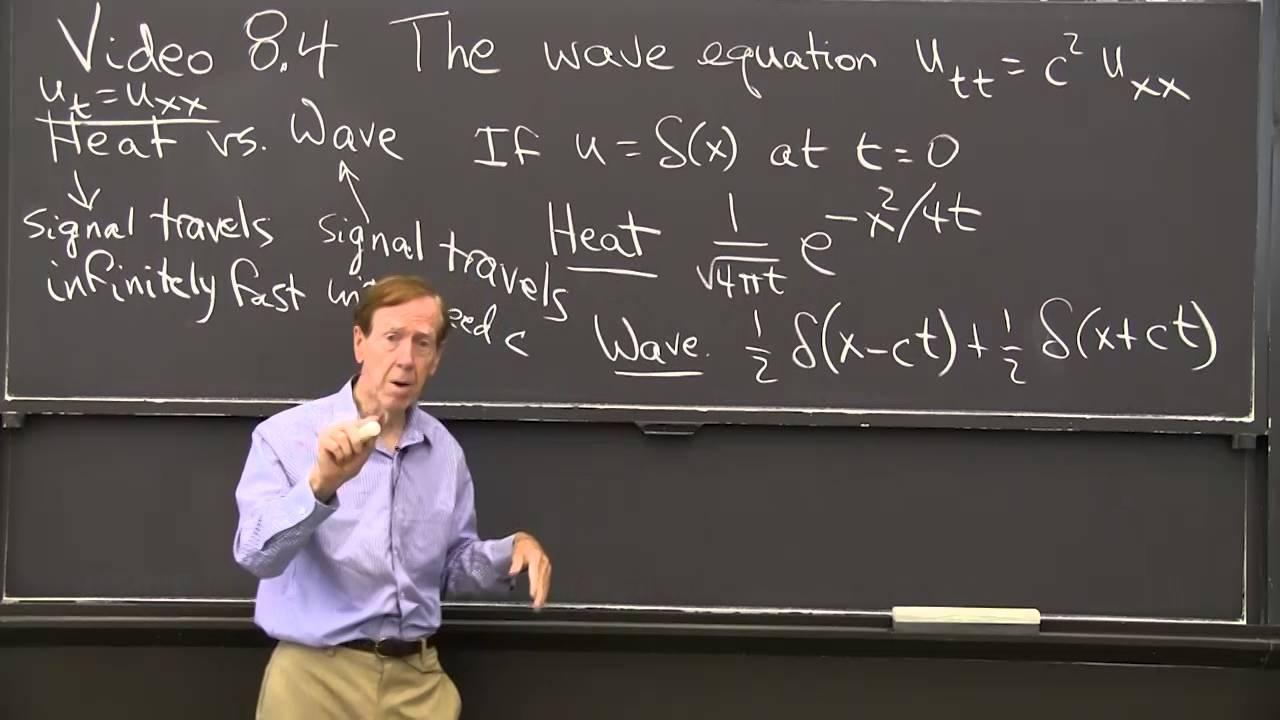 Video 8.4 The wave equation u_tt = c² u_xx
u_t = u_xx
Heat vs. Wave
If u = δ(x) at t = 0
signal travels
infinitely fast
signal travels
c
Heat 1/√4πt e^(-x²/4t)
Wave. ½ δ(x-ct) + ½ δ(x+ct)